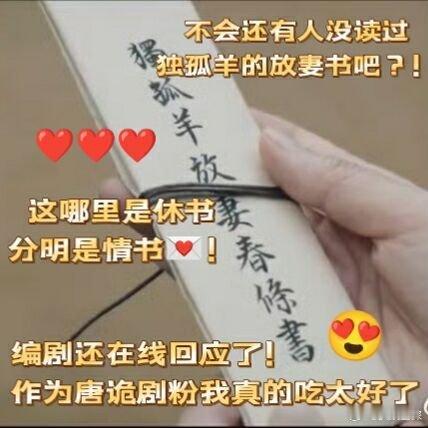 不会还有人没读过
独孤羊的放妻书吧？！
獨孤羊放妻春條書
这哪里是休书
分明是情书💌！
编剧还在线回应了！
作为唐诡剧粉我真的吃太好了